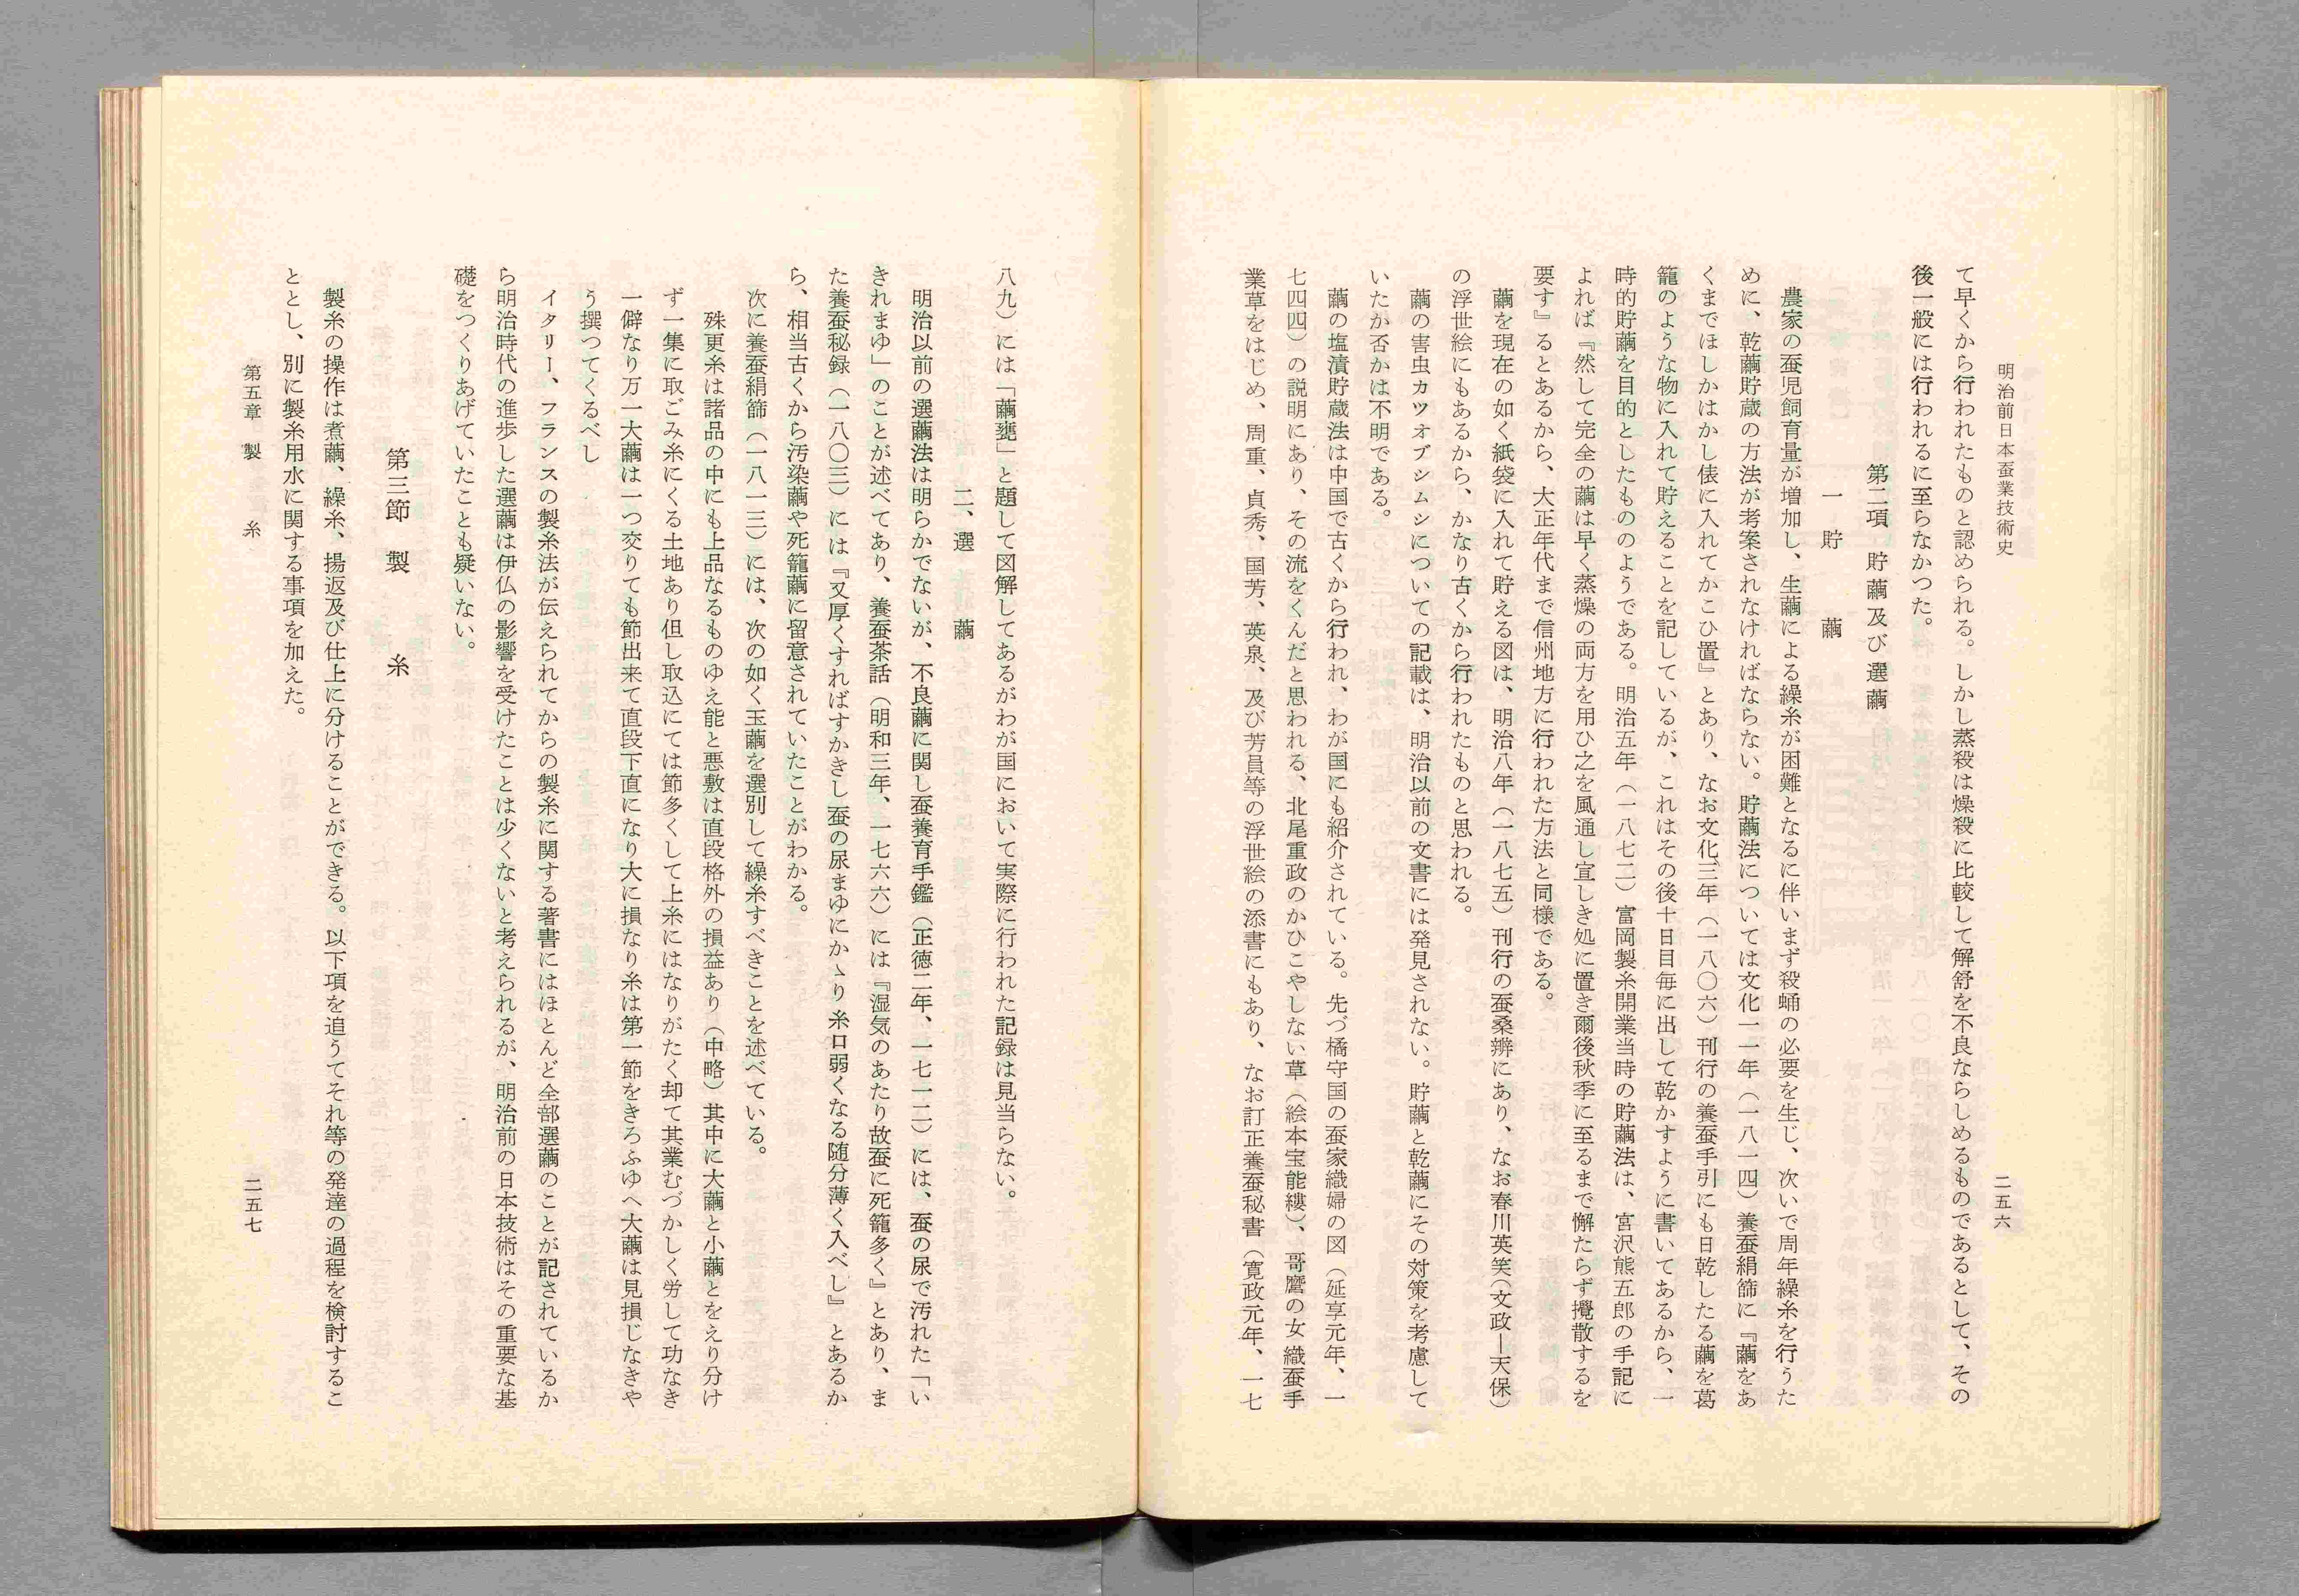 明治前日本蚕業技術史
二五六
て早くから行われたものと認められる。しかし蒸殺は燥殺に比較して解舒を不良ならしめるものであるとして、その
後一般には行われるに至らなかつた。
第二項 貯繭及び選繭
一 貯繭
農家の蚕児飼育量が増加し、生繭による繰糸が困難となるに伴いまず殺蛹の必要を生じ、次いで周年繰糸を行うた
めに、乾繭貯蔵の方法が考案されなければならない。貯繭法については文化一一年(一八一四)養蚕絹篩に『繭をあ
くまでほしかはかし俵に入れてかこひ置』とあり、なお文化三年(一八〇六)刊行の養蚕手引にも日乾したる繭を葛
籠のような物に入れて貯えることを記しているが、これはその後十日目毎に出して乾かすように書いてあるから、一
時的貯繭を目的としたもののようである。明治五年(一八七二)富岡製糸開業当時の貯繭法は、宮沢熊五郎の手記に
よれば『然して完全の繭は早く蒸燥の両方を用ひ之を風通し宜しき処に置き爾後秋季に至るまで懈たらず攪散するを
要す』るとあるから、大正年代まで信州地方に行われた方法と同様である。
繭を現在の如く紙袋に入れて貯える図は、明治八年(一八七五)刊行の蚕桑辨にあり、なお春川英笑(文政―天保)
の浮世絵にもあるから、かなり古くから行われたものと思われる。
繭の害虫カツオブシムシについての記載は、明治以前の文書には発見されない。貯繭と乾繭にその対策を考慮して
いたか否かは不明である。
繭の塩漬貯蔵法は中国で古くから行われ、わが国にも紹介されている。先づ橘守国の蚕家織婦の図(延享元年、一
七四四)の説明にあり、その流をくんだと思われる、北尾重政のかひこやしない草(絵本宝能縷)、哥麿の女織蚕手
業草をはじめ、周重、貞秀、国芳、英泉、及び芳員等の浮世絵の添書にもあり、なお訂正養蚕秘書(寛政元年、一七
八九)には「繭甕」と題して図解してあるがわが国において実際に行われた記録は見当らない。
二、選繭
明治以前の選繭法は明らかでないが、不良繭に関し蚕養育手鑑(正徳二年、一七一二)には、蚕の尿で汚れた「い
きれまゆ」のことが述べてあり、養蚕茶話(明和三年、一七六六)には『湿気のあたり故蚕に死籠多く』とあり、ま
た養蚕秘録(一八〇三)には『又厚くすればすかきし蚕の尿まゆにかゝり糸口弱くなる随分薄く入べし』とあるか
ら、相当古くから汚染繭や死籠繭に留意されていたことがわかる。
次に養蚕絹篩(一八一三)には、次の如く玉繭を選別して繰糸すべきことを述べている。
殊更糸は諸品の中にも上品なるものゆえ能と悪敷は直段格外の損益あり(中略)其中に大繭と小繭とをえり分け
ず一集に取ごみ糸にくる土地あり但し取込にては節多くして上糸にはなりがたく却て其業むづかしく労して功なき
一僻なり万一大繭は一つ交りても節出来て直段下直になり大に損なり糸は第一節をきろふゆへ大繭は見損じなきや
う撰つてくるべし
イタリー、フランスの製糸法が伝えられてからの製糸に関する著書にはほとんど全部選繭のことが記されているか
ら明治時代の進歩した選繭は伊仏の影響を受けたことは少くないと考えられるが、明治前の日本技術はその重要な基
礎をつくりあげていたことも疑いない。
第三節 製糸
製糸の操作は煮繭、繰糸、揚返及び仕上に分けることができる。以下項を追うてそれ等の発達の過程を検討するこ
ととし、別に製糸用水に関する事項を加えた。
第五章 製糸
二五七